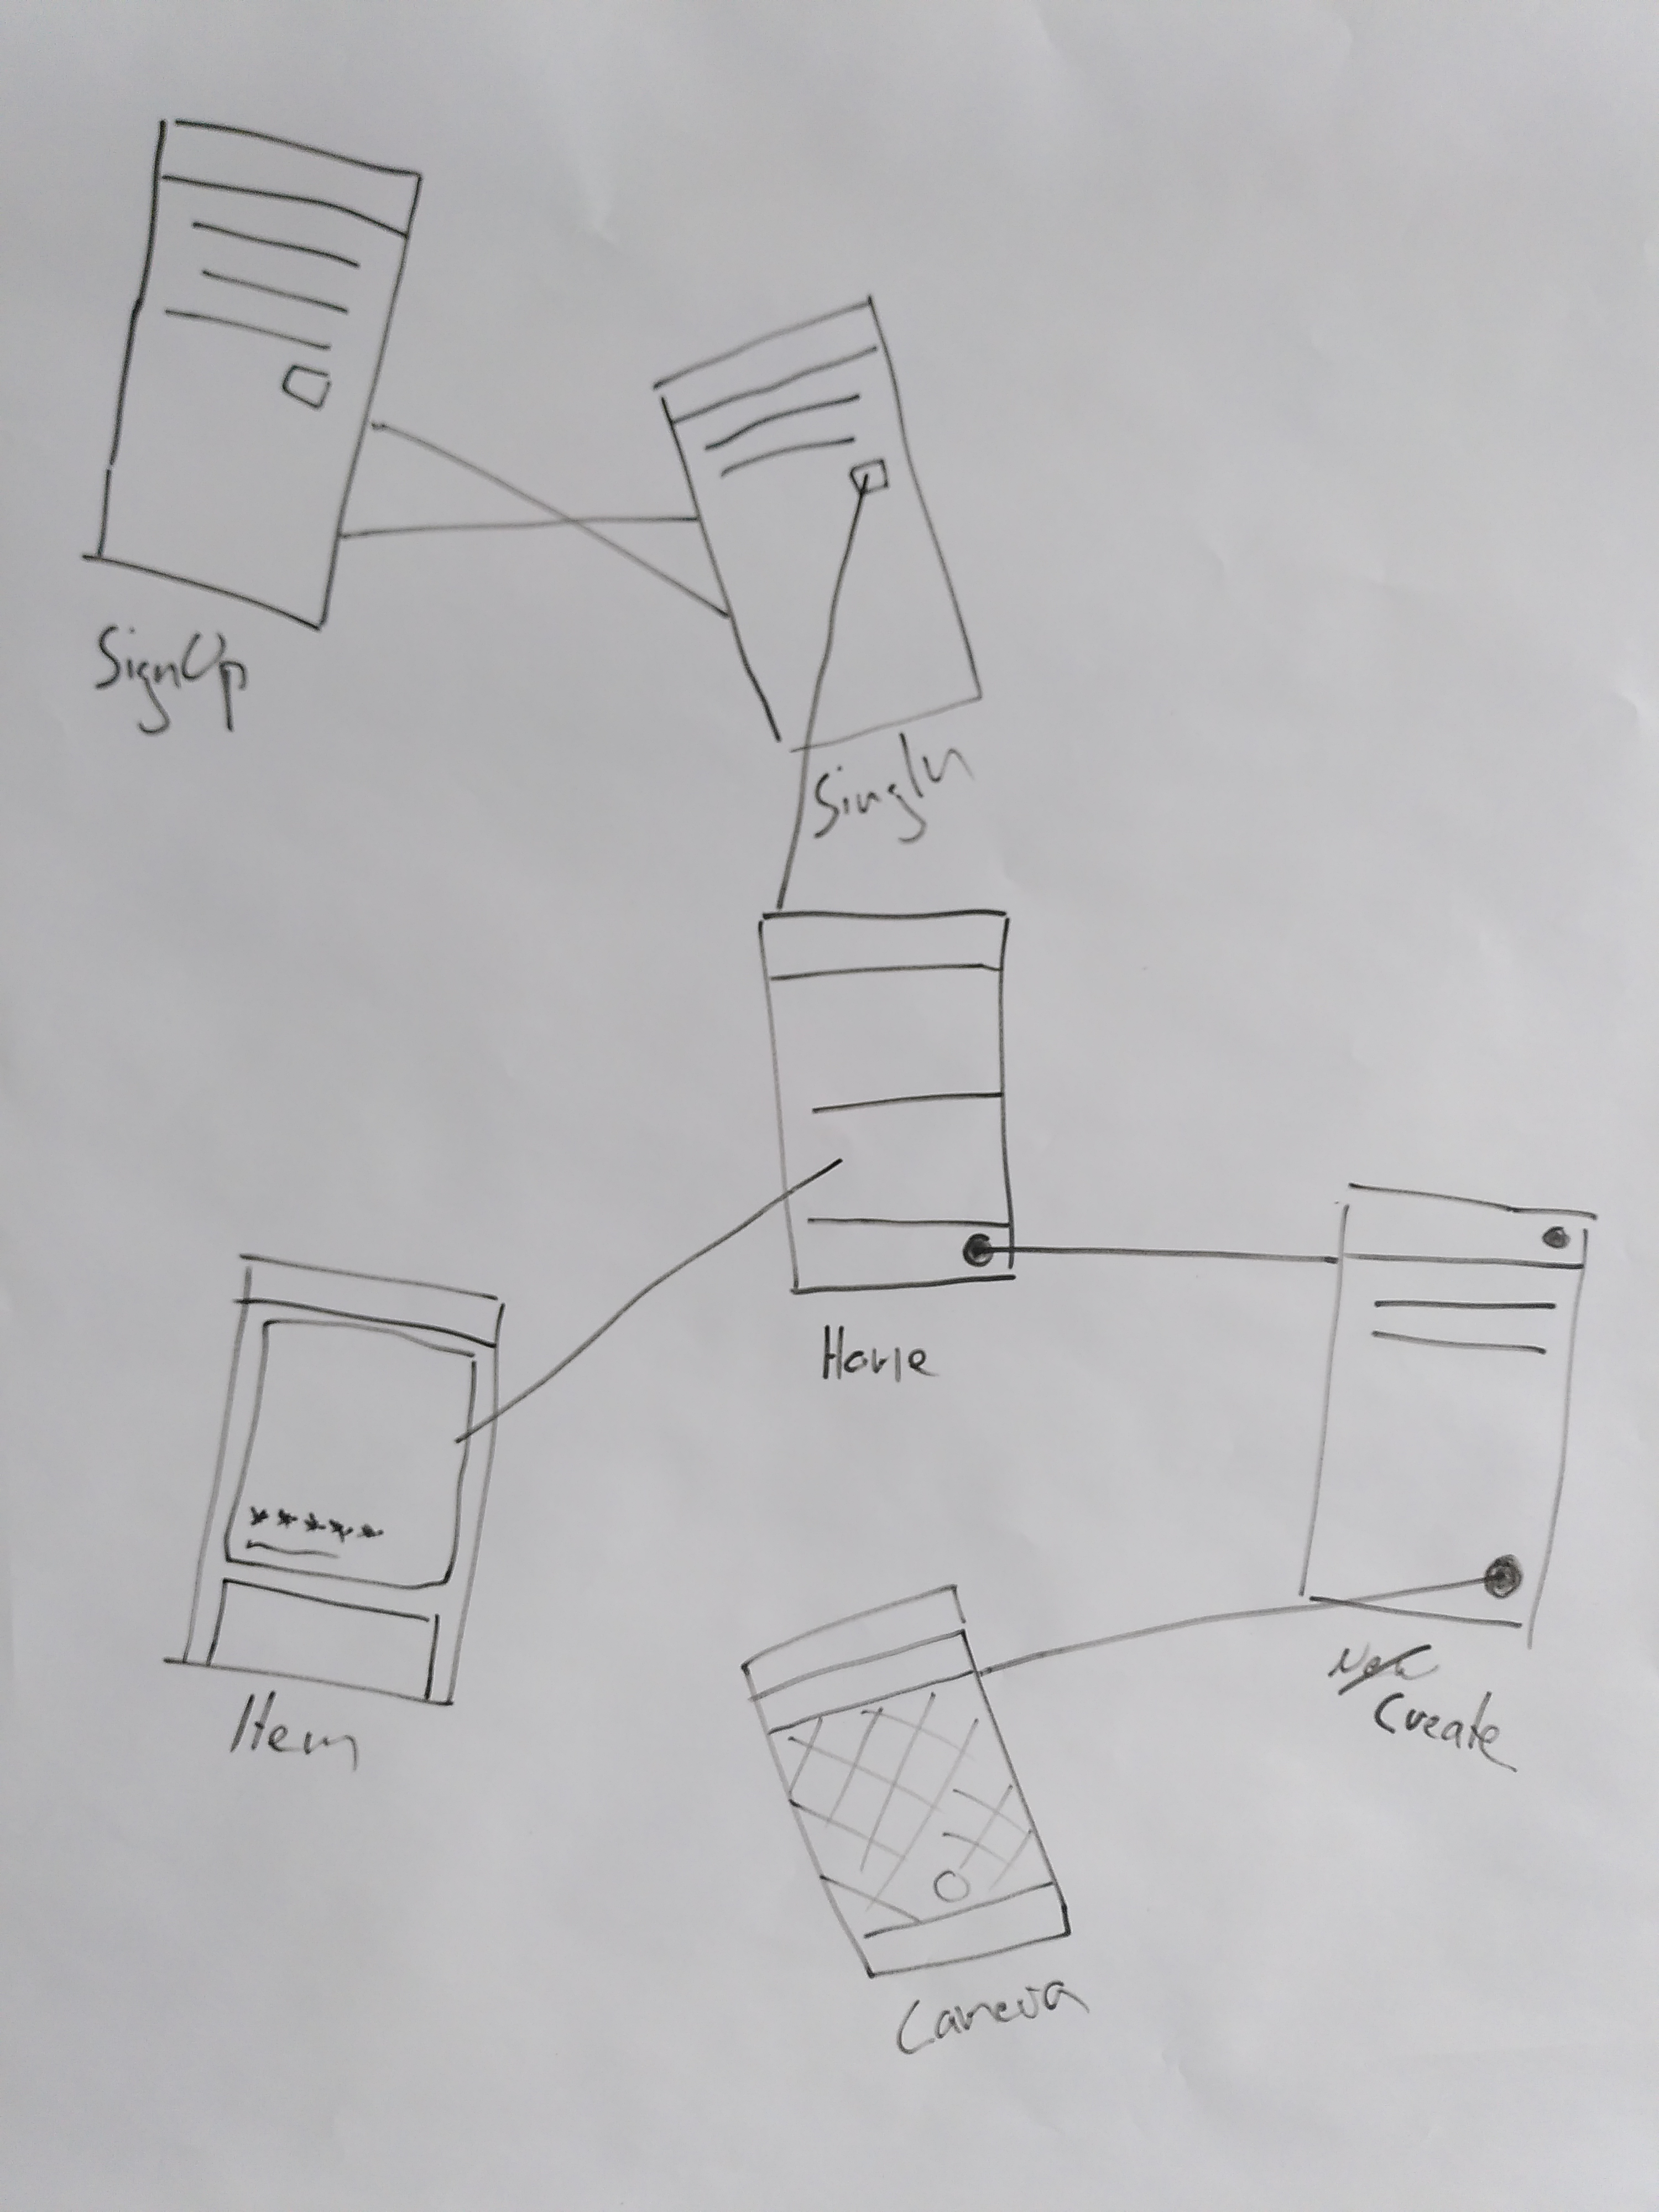 SignUp
SingIn
Home
Item
New
Create
Camera